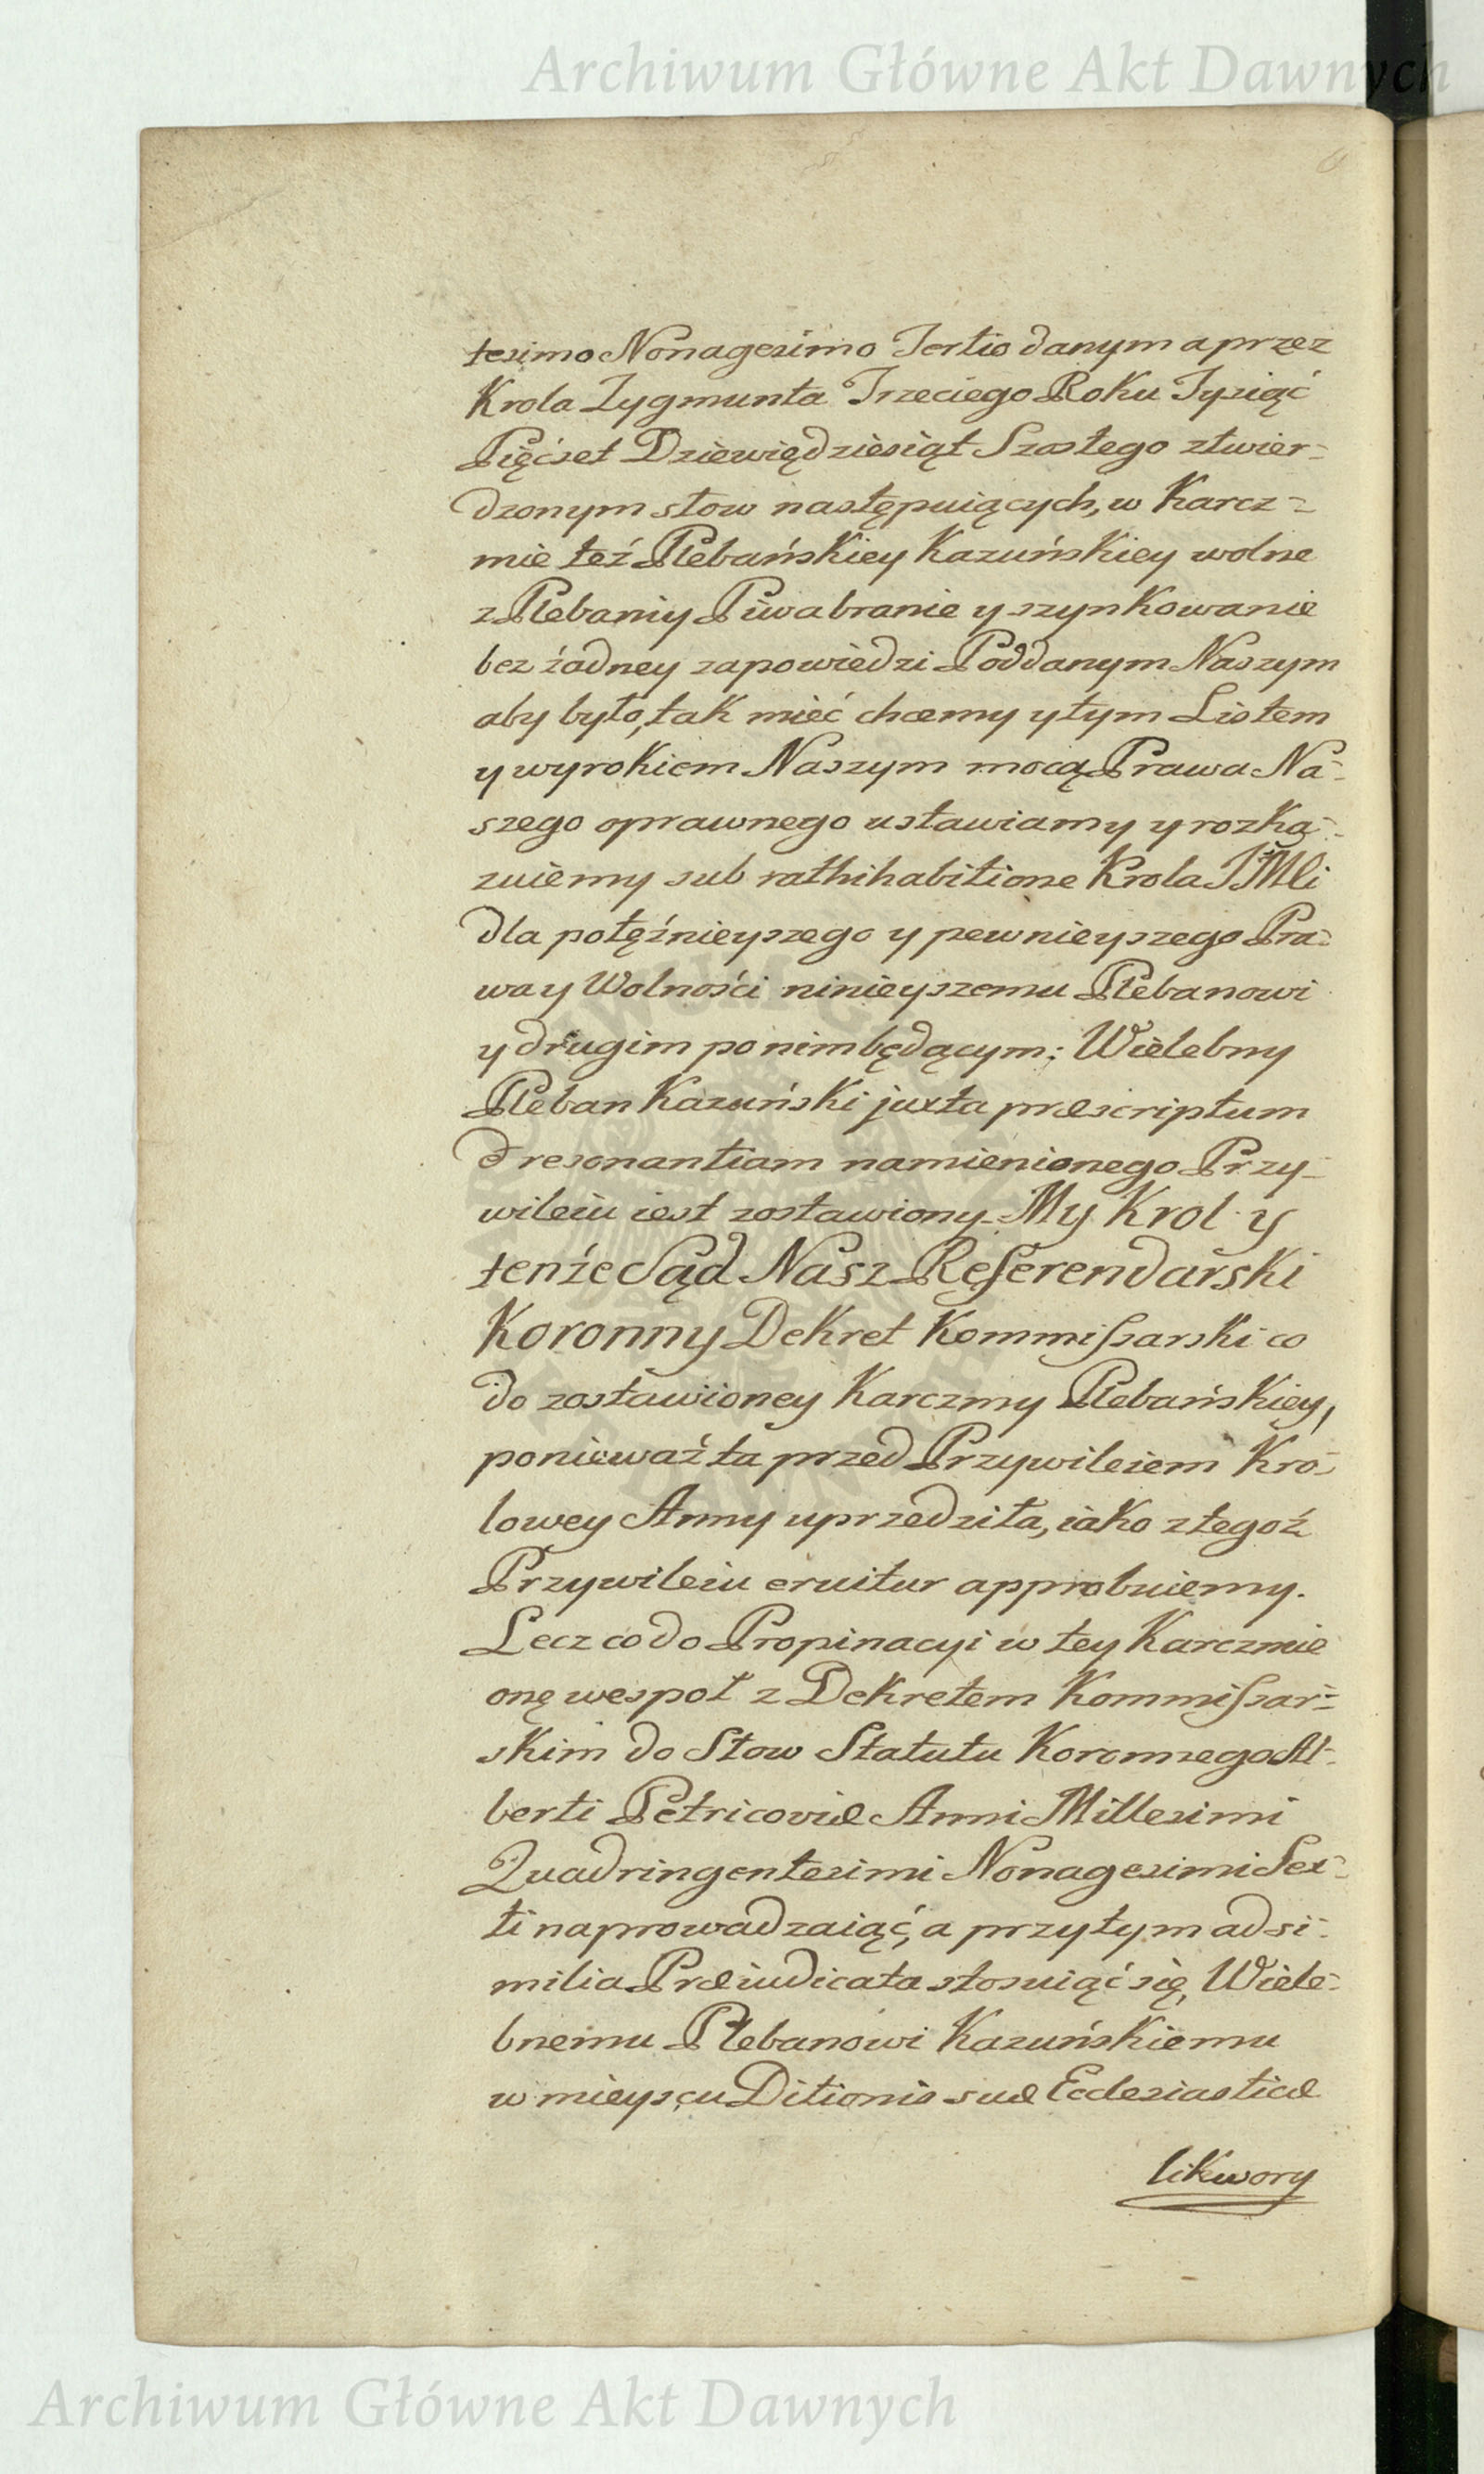 Archiwum Główne Akt Dawnych
tesimo Nonagesimo Tertio danym a przez
Krola Zygmunta Trzeciego Roku Tysiąć
Pięćset Dziewiędziesiąt Szostego ztwier-
dzonym słow następuiących, w Karcz-
mie też Plebańskiey Kazuńskiey wolne
z Plebaniy Piwa branie y szynkowanie
bez żadney zapowiedzi Poddanym Naszym
aby było, tak mieć chcemy y tym Listem
y wyrokiem Naszym mocą Prawa Na-
szego oprawnego ustawiamy y rozka-
zuiemy sub rathihabitione Krola JMli
dla potężnieyszego y pewnieyszego Pra-
wa y Wolności ninieyszemu Plebanowi
y drugim po nim będącym; Wielebny
Pleban Kazuński juxta præscriptum
& resonantiam namienionego Przy-
wileiu iest zostawiony. My Krol y
tenże Sąd Nasz Referendarski
Koronny Dekret Kommissarski co
do zostawioney Karczmy Plebańskiey,
ponieważ ta przed Przywileiem Kro-
lowey Anny uprzedziła, iako z tegoż
Przywileiu eruitur approbuiemy.
Lecz co do Propinacyi w tey Karczmie
onę wespoł z Dekretem Kommissar-
skim do Słow Statutu Koronnego Al-
berti Petricoviæ Anni Millesimi
Quadringentesimi Nonagesimi Sex-
ti naprowadzaiąć, a przytym ad si-
milia Præiudicata stosuiąć się, Wiele-
bnemu Plebanowi Kazuńskiemu
w mieyscu Ditionis suæ Ecclesiasticæ
likwory
Archiwum Główne Akt Dawnych